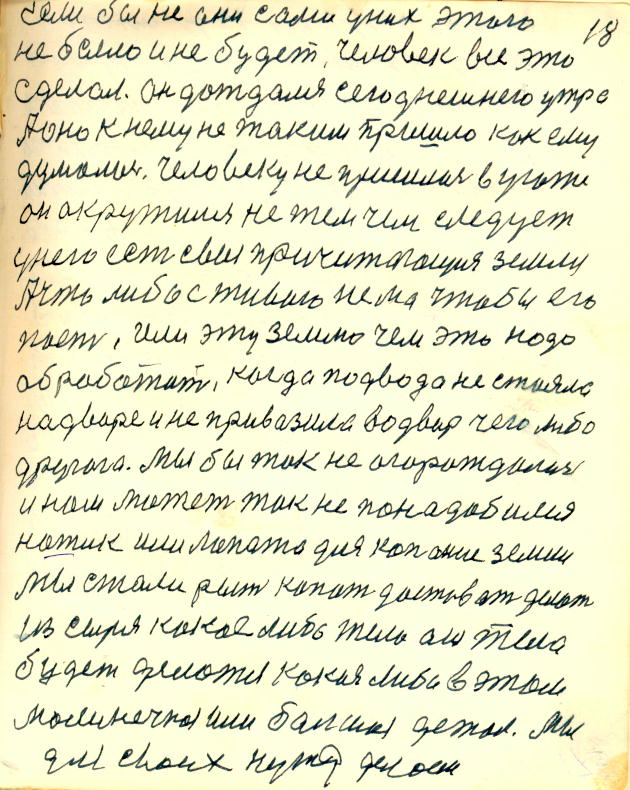 18
если бы не они сами у них этого
не было и не будет, человек все это
сделал. он дождался сегоднешнего утра
А оно к нему не таким пришло как ему
думалося. человеку не пришлося в угоже
он окружился не тем чем следует
у него ест свая причитающия земля
А что либо с такого нема чтобы его
поет, или эту землю чем это надо
обработат, когда подвода не стояла
на дворе и не привазила во двор чего либо
другога. Мы бы так не огорождалися
и нам может так не понадобился
нотик или лопата для копание земли
Мы стали рыт копат достават делат
из сыря какое либо тело а из тела
будет делотся какая либа в этом
малинечкая или балшая детал. Мы
для своих нужд делаем